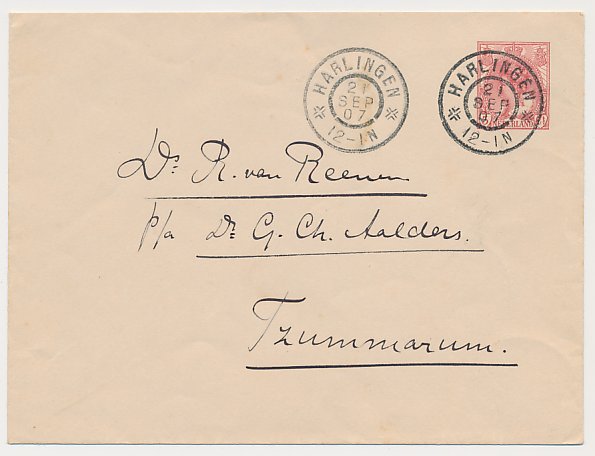 HARLINGEN
21
SEP
07
12-1N
HARLINGEN
21
SEP
07
12-1N
Ds. R. van Reenen
p/a Ds. G. Ch. Aalders.
Tzummarum.